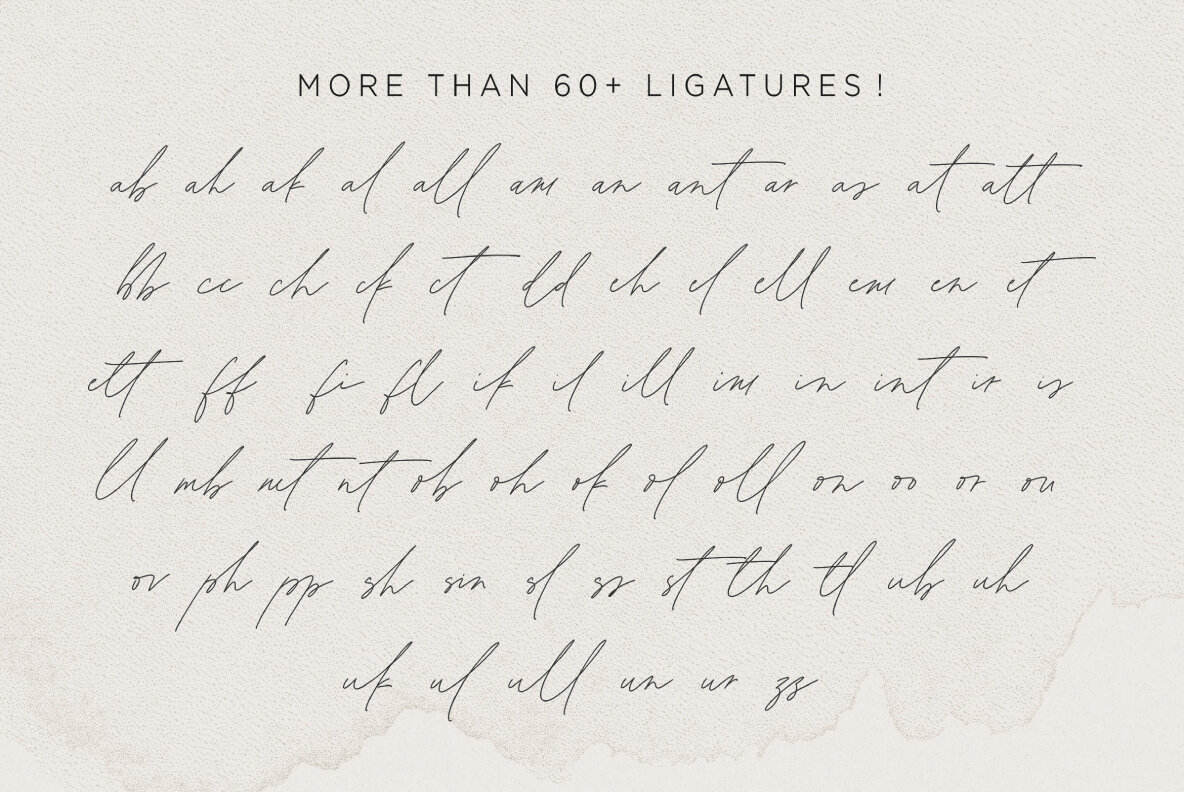 MORE THAN 60+ LIGATURES!
ab ah ak al all am an ant ar as at att
bb cc ch ck ct dd eh el ell em en et
ett ff fi fl ik il ill im in int ir is
ll mb mt nt ob oh ok ol oll on oo or ou
ov ph pp sh sin sl ss st th tl ub uh
uk ul ull un ur zz